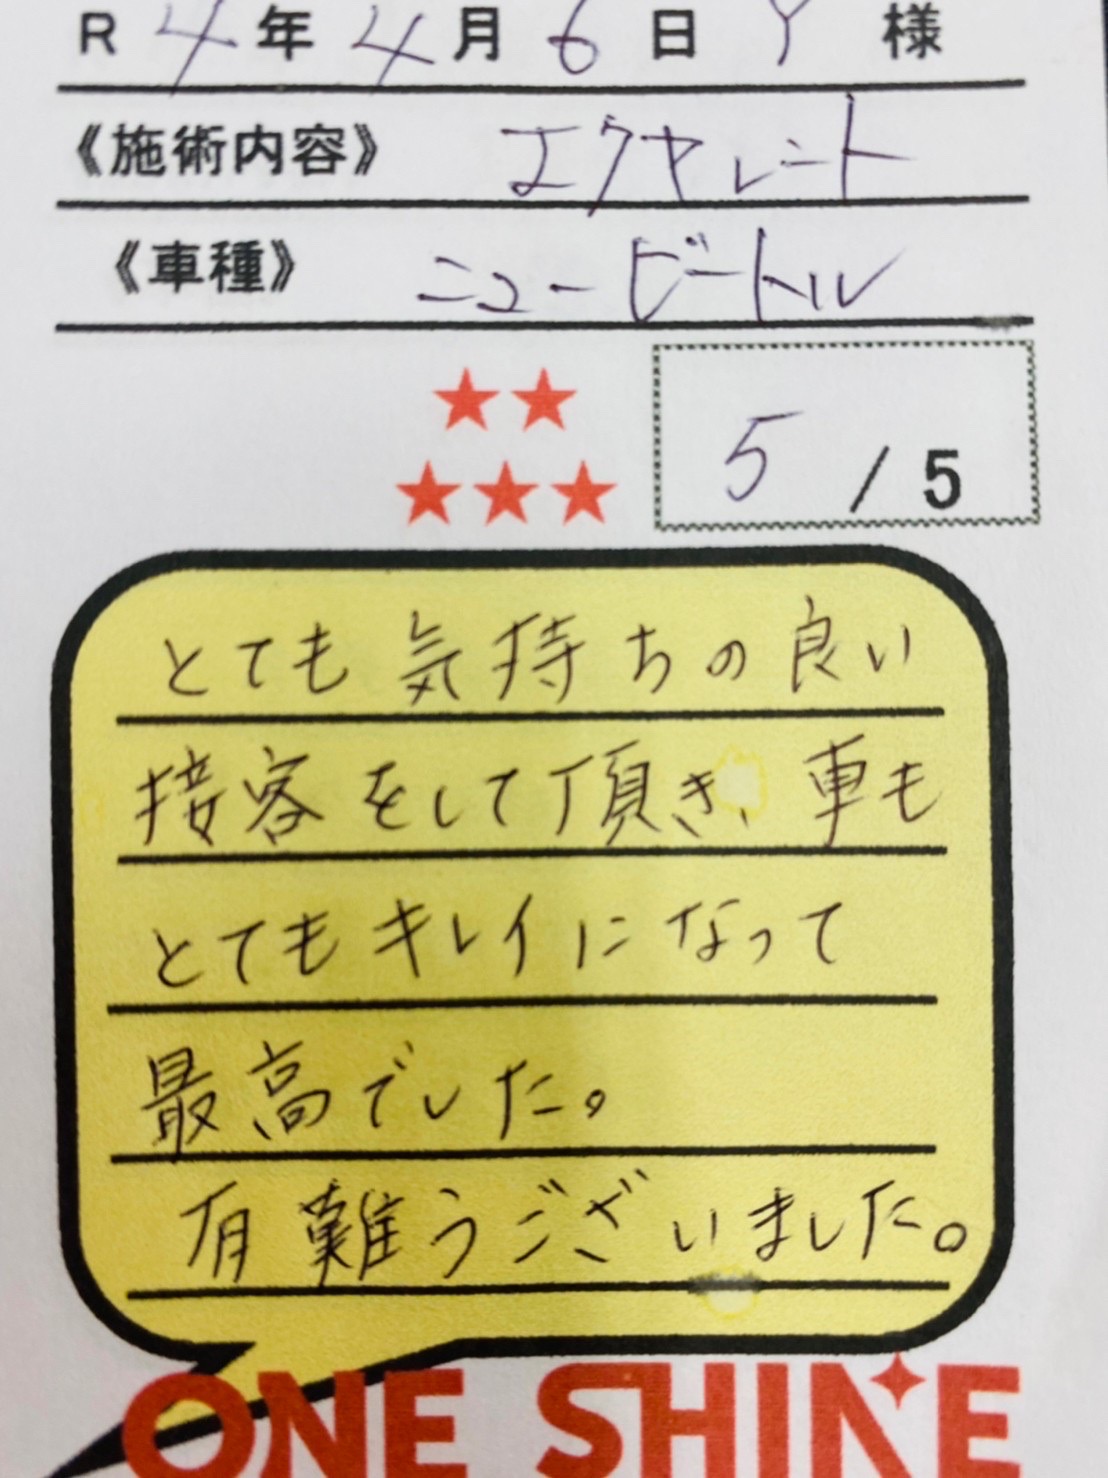 R 4 年 4 月 6 日 Y 様
《施術内容》 エクヤレント
《車種》 ニュービートル
★★
★★★ 5 / 5
とても気持ちの良い
接客をして頂き、車も
とてもキレイになって
最高でした。
有難うございました。
ONE SHINE